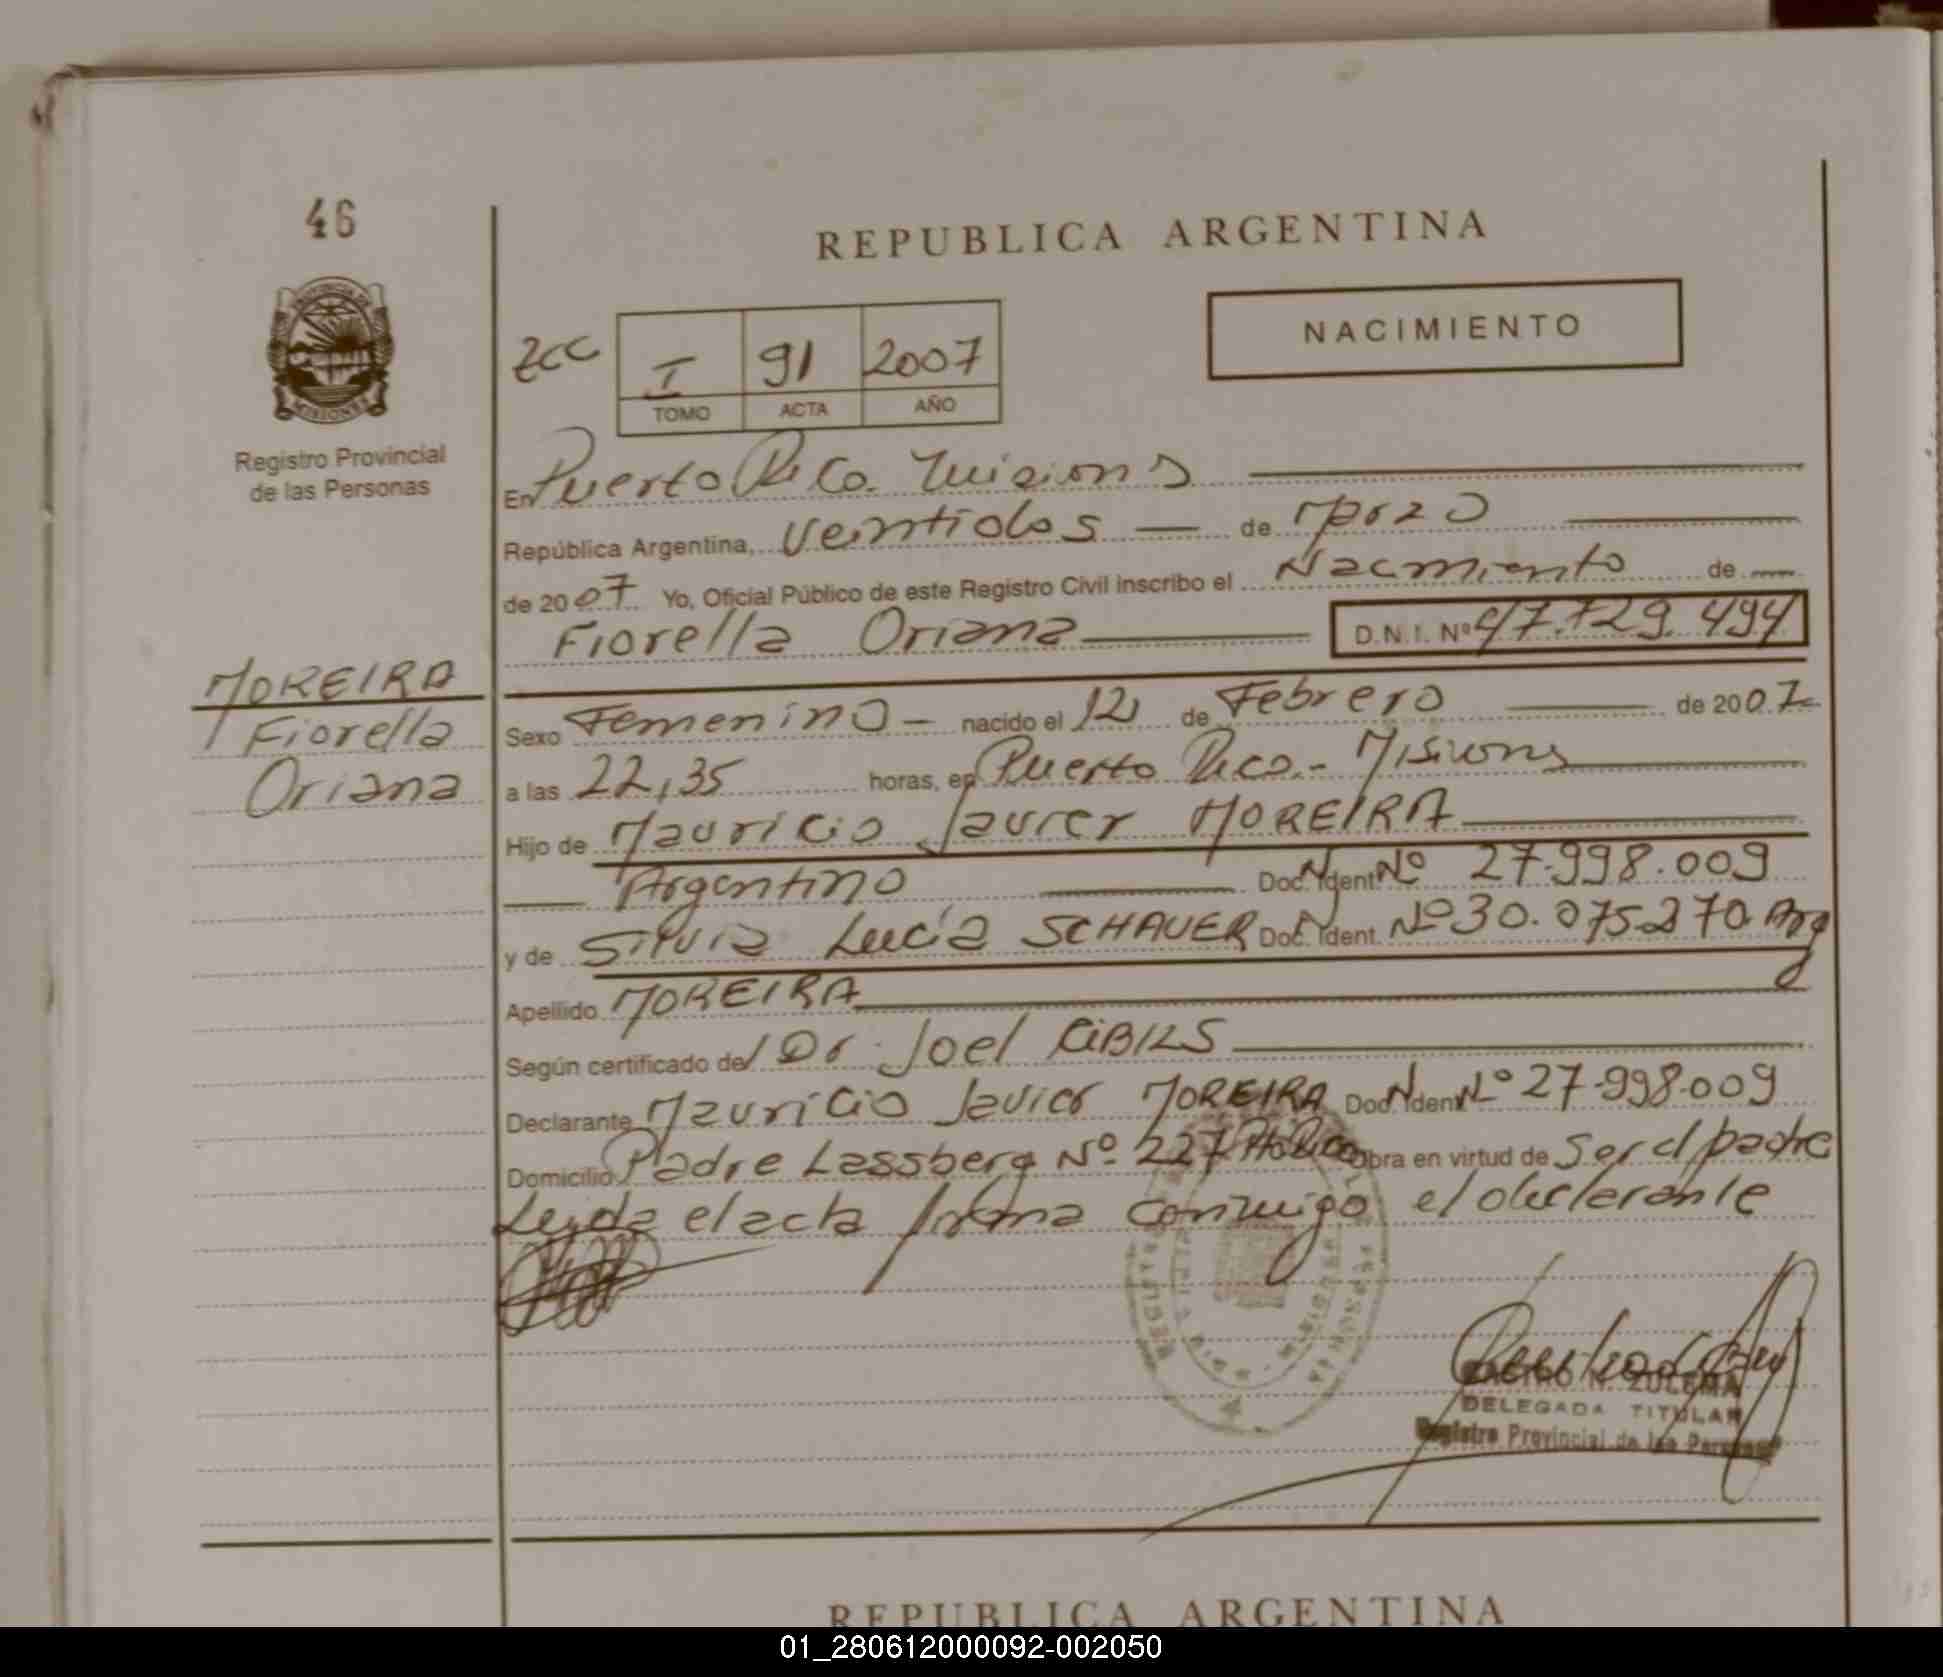 46
REPUBLICA ARGENTINA
PROVINCIA DE
MISIONES
NACIMIENTO
I 91 2007
TOMO ACTA AÑO
Registro Provincial
de las Personas
En Puerto Rico. Misiones
República Argentina, veintidos — de Marzo
de 2007 Yo, Oficial Público de este Registro Civil inscribo el Nacimiento de
Fiorella Oriana D.N.I. Nº 47.729.494
MOREIRA
Fiorella
Oriana
Sexo Femenino - nacido el 12 de Febrero de 2007
a las 22,35 horas, en Puerto Rico.- Misiones
Hijo de Mauricio Javier MOREIRA
Argentino Doc. Ident. Nº 27.998.009
y de Silvia Lucía SCHAUER Doc. Ident. Nº 30.075.270 Arg
Apellido MOREIRA
Según certificado del Dr. Joel CIBILS
Declarante Mauricio Javier MOREIRA Doc. Ident. Nº 27.998.009
Domicilio Padre Lassberg Nº 227 Pto Rico Obra en virtud de ser el padre
Leida el acta firma conmigo el declarante
ZULEMA
DELEGADA TITULAR
Registro Provincial de las Personas
REPUBLICA ARGENTINA
01_280612000092-002050